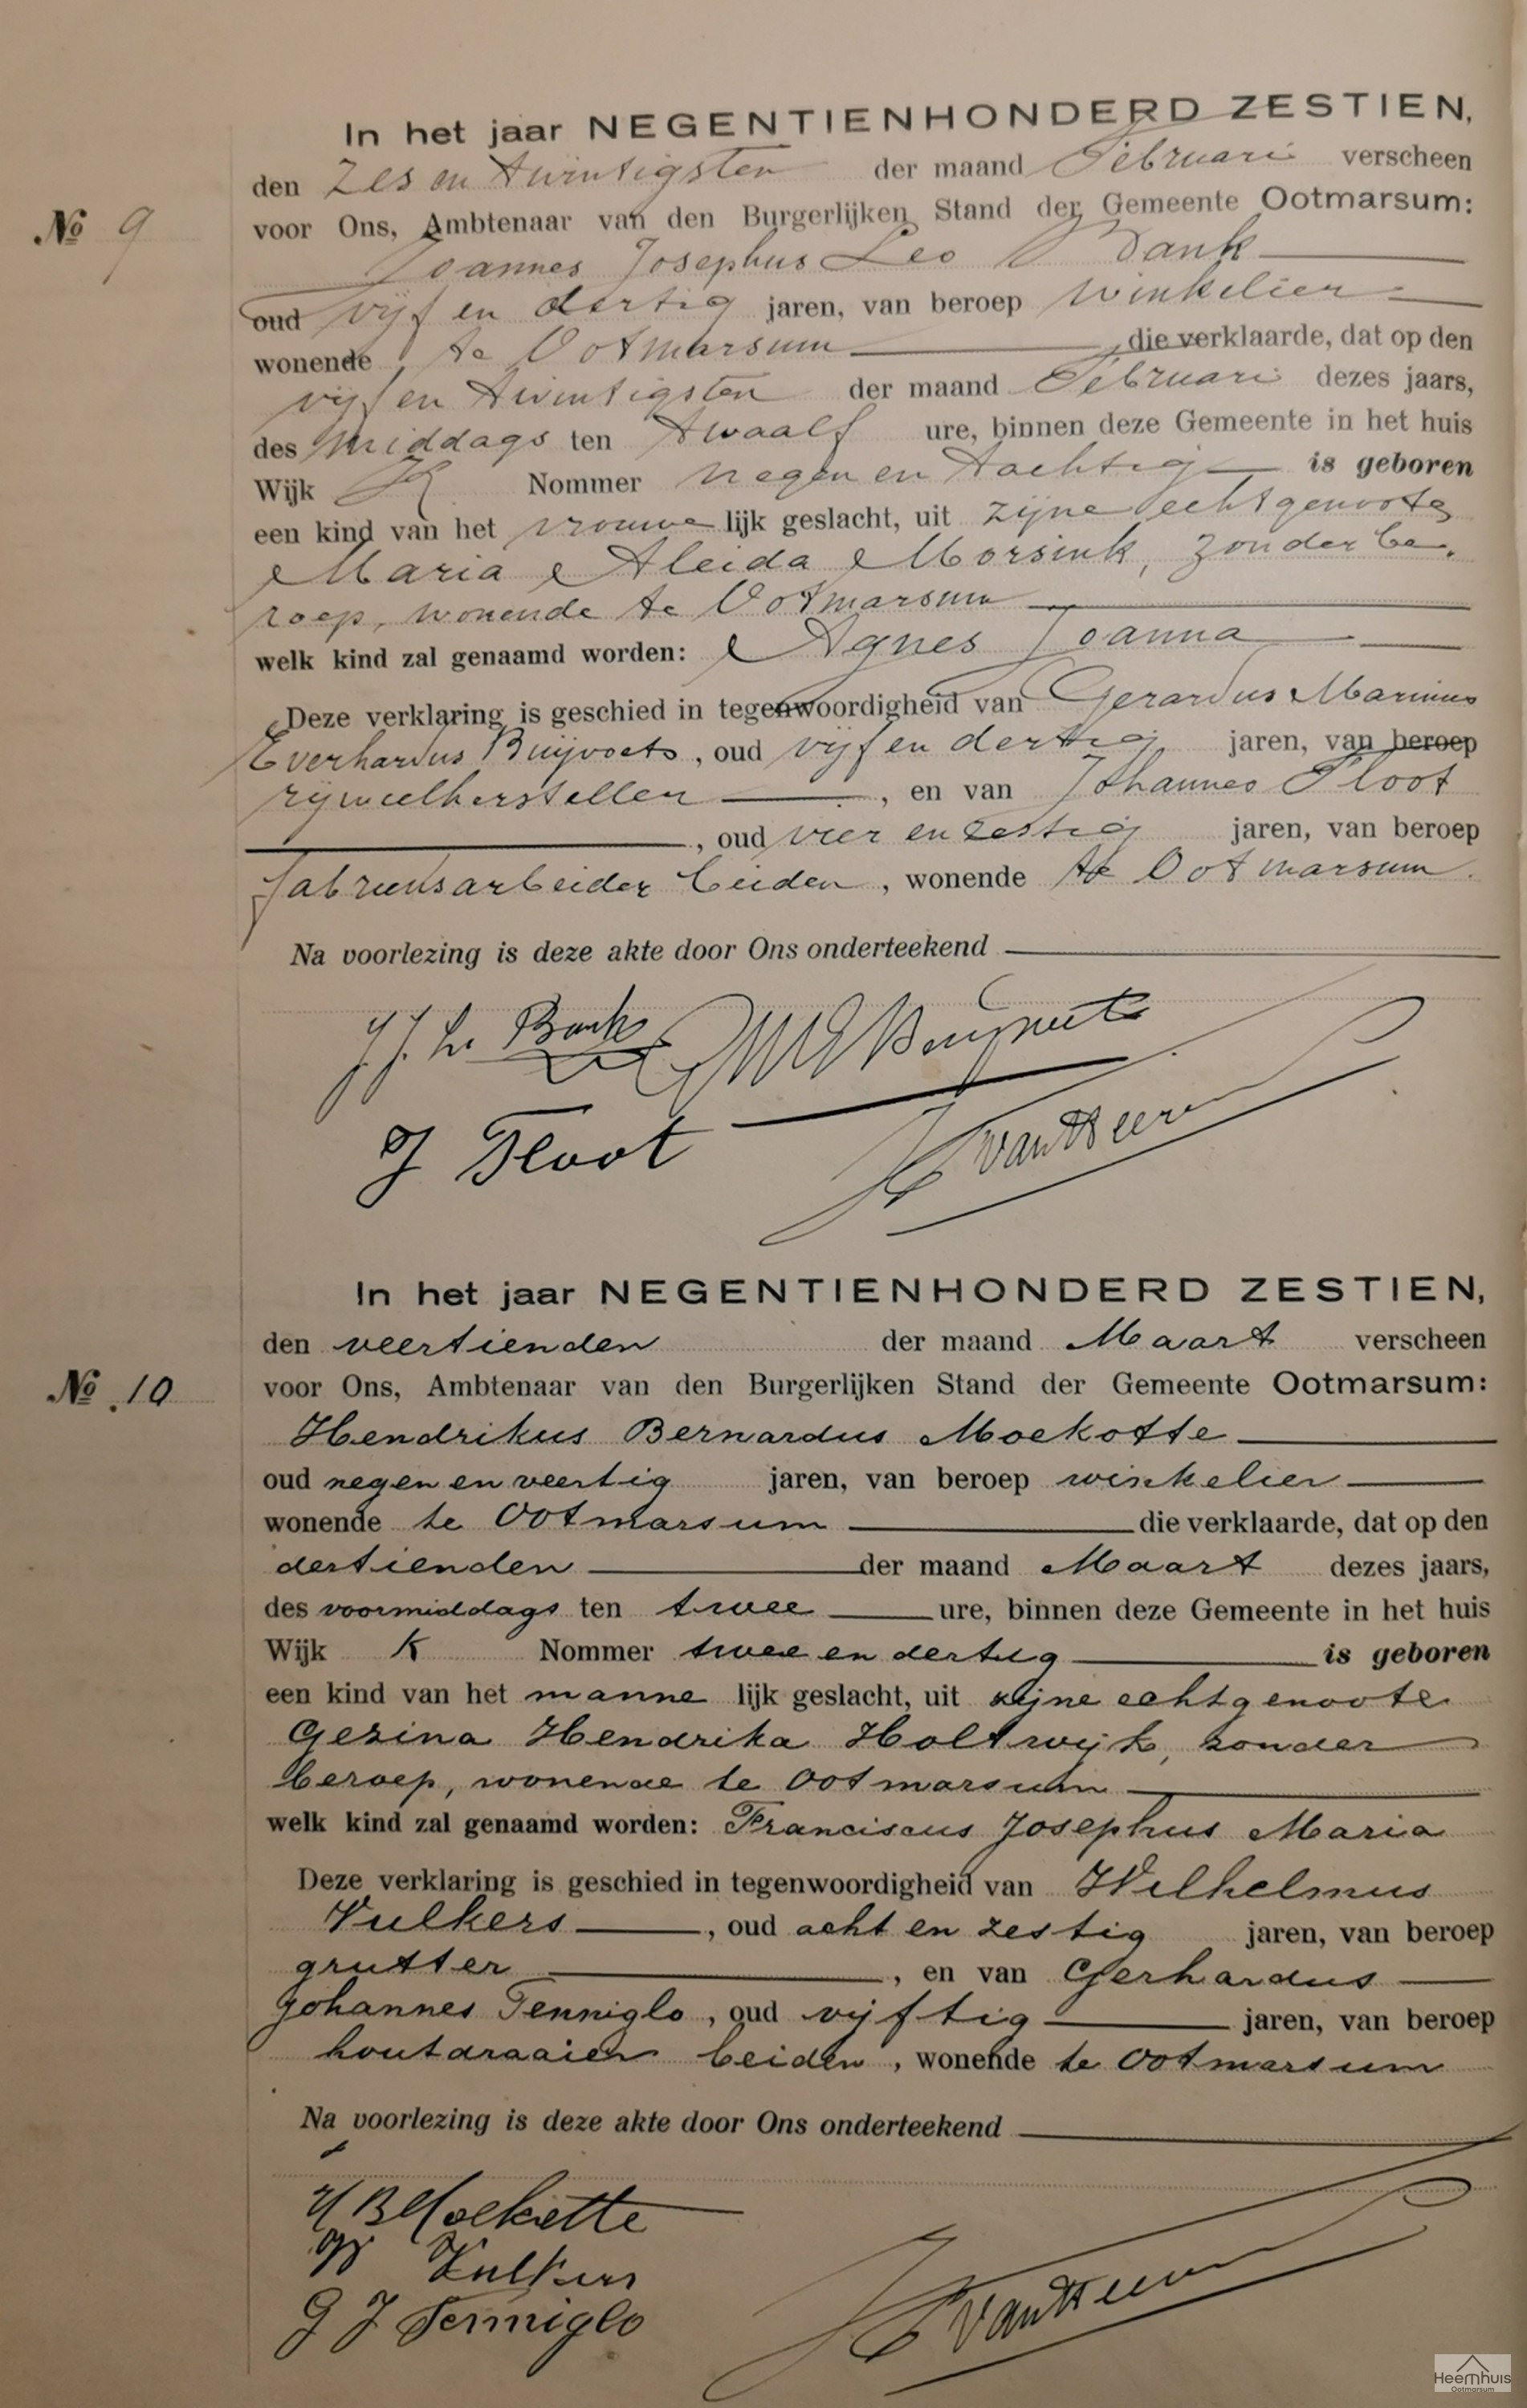 In het jaar NEGENTIENHONDERD ZESTIEN,
den Zes en twintigsten der maand Februari verscheen
voor Ons, Ambtenaar van den Burgerlijken Stand der Gemeente Ootmarsum:
№ 9
Joannes Josephus Leo Bank
oud vijf en dertig jaren, van beroep winkelier
wonende te Ootmarsum die verklaarde, dat op den
vijf en twintigsten der maand Februari dezes jaars,
des middags ten twaalf ure, binnen deze Gemeente in het huis
Wijk K Nommer negen en tachtig is geboren
een kind van het vrouwe lijk geslacht, uit zijne echtgenoote
Maria Aleida Morsink, zonder be-
roep, wonende te Ootmarsum
welk kind zal genaamd worden: Agnes Joanna
Deze verklaring is geschied in tegenwoordigheid van Gerardus Marinus
Everhardus Buijvoets, oud vijf en dertig jaren, van beroep
rijwielhersteller, en van Johannes Floot
, oud vier en zestig jaren, van beroep
fabrieksarbeider beiden, wonende te Ootmarsum.
Na voorlezing is deze akte door Ons onderteekend
J. J. L. Bank GME Buijvoets
J Floot
van Heer
In het jaar NEGENTIENHONDERD ZESTIEN,
den veertienden der maand Maart verscheen
№ 10 voor Ons, Ambtenaar van den Burgerlijken Stand der Gemeente Ootmarsum:
Hendrikus Bernardus Moekotte
oud negen en veertig jaren, van beroep winkelier
wonende te Ootmarsum die verklaarde, dat op den
dertienden der maand Maart dezes jaars,
des voormiddags ten twee ure, binnen deze Gemeente in het huis
Wijk K Nommer twee en dertig is geboren
een kind van het manne lijk geslacht, uit zijne echtgenoote
Gezina Hendrika Holtwijk, zonder
beroep, wonende te Ootmarsum
welk kind zal genaamd worden: Franciscus Josephus Maria
Deze verklaring is geschied in tegenwoordigheid van Wilhelmus
Vulkers, oud acht en zestig jaren, van beroep
grutter, en van Gerhardus
Johannes Tenniglo, oud vijftig jaren, van beroep
houtdraaier beiden, wonende te Ootmarsum
Na voorlezing is deze akte door Ons onderteekend
H B Moekotte
W Vulkers
G J Tenniglo
Heemhuis
Ootmarsum